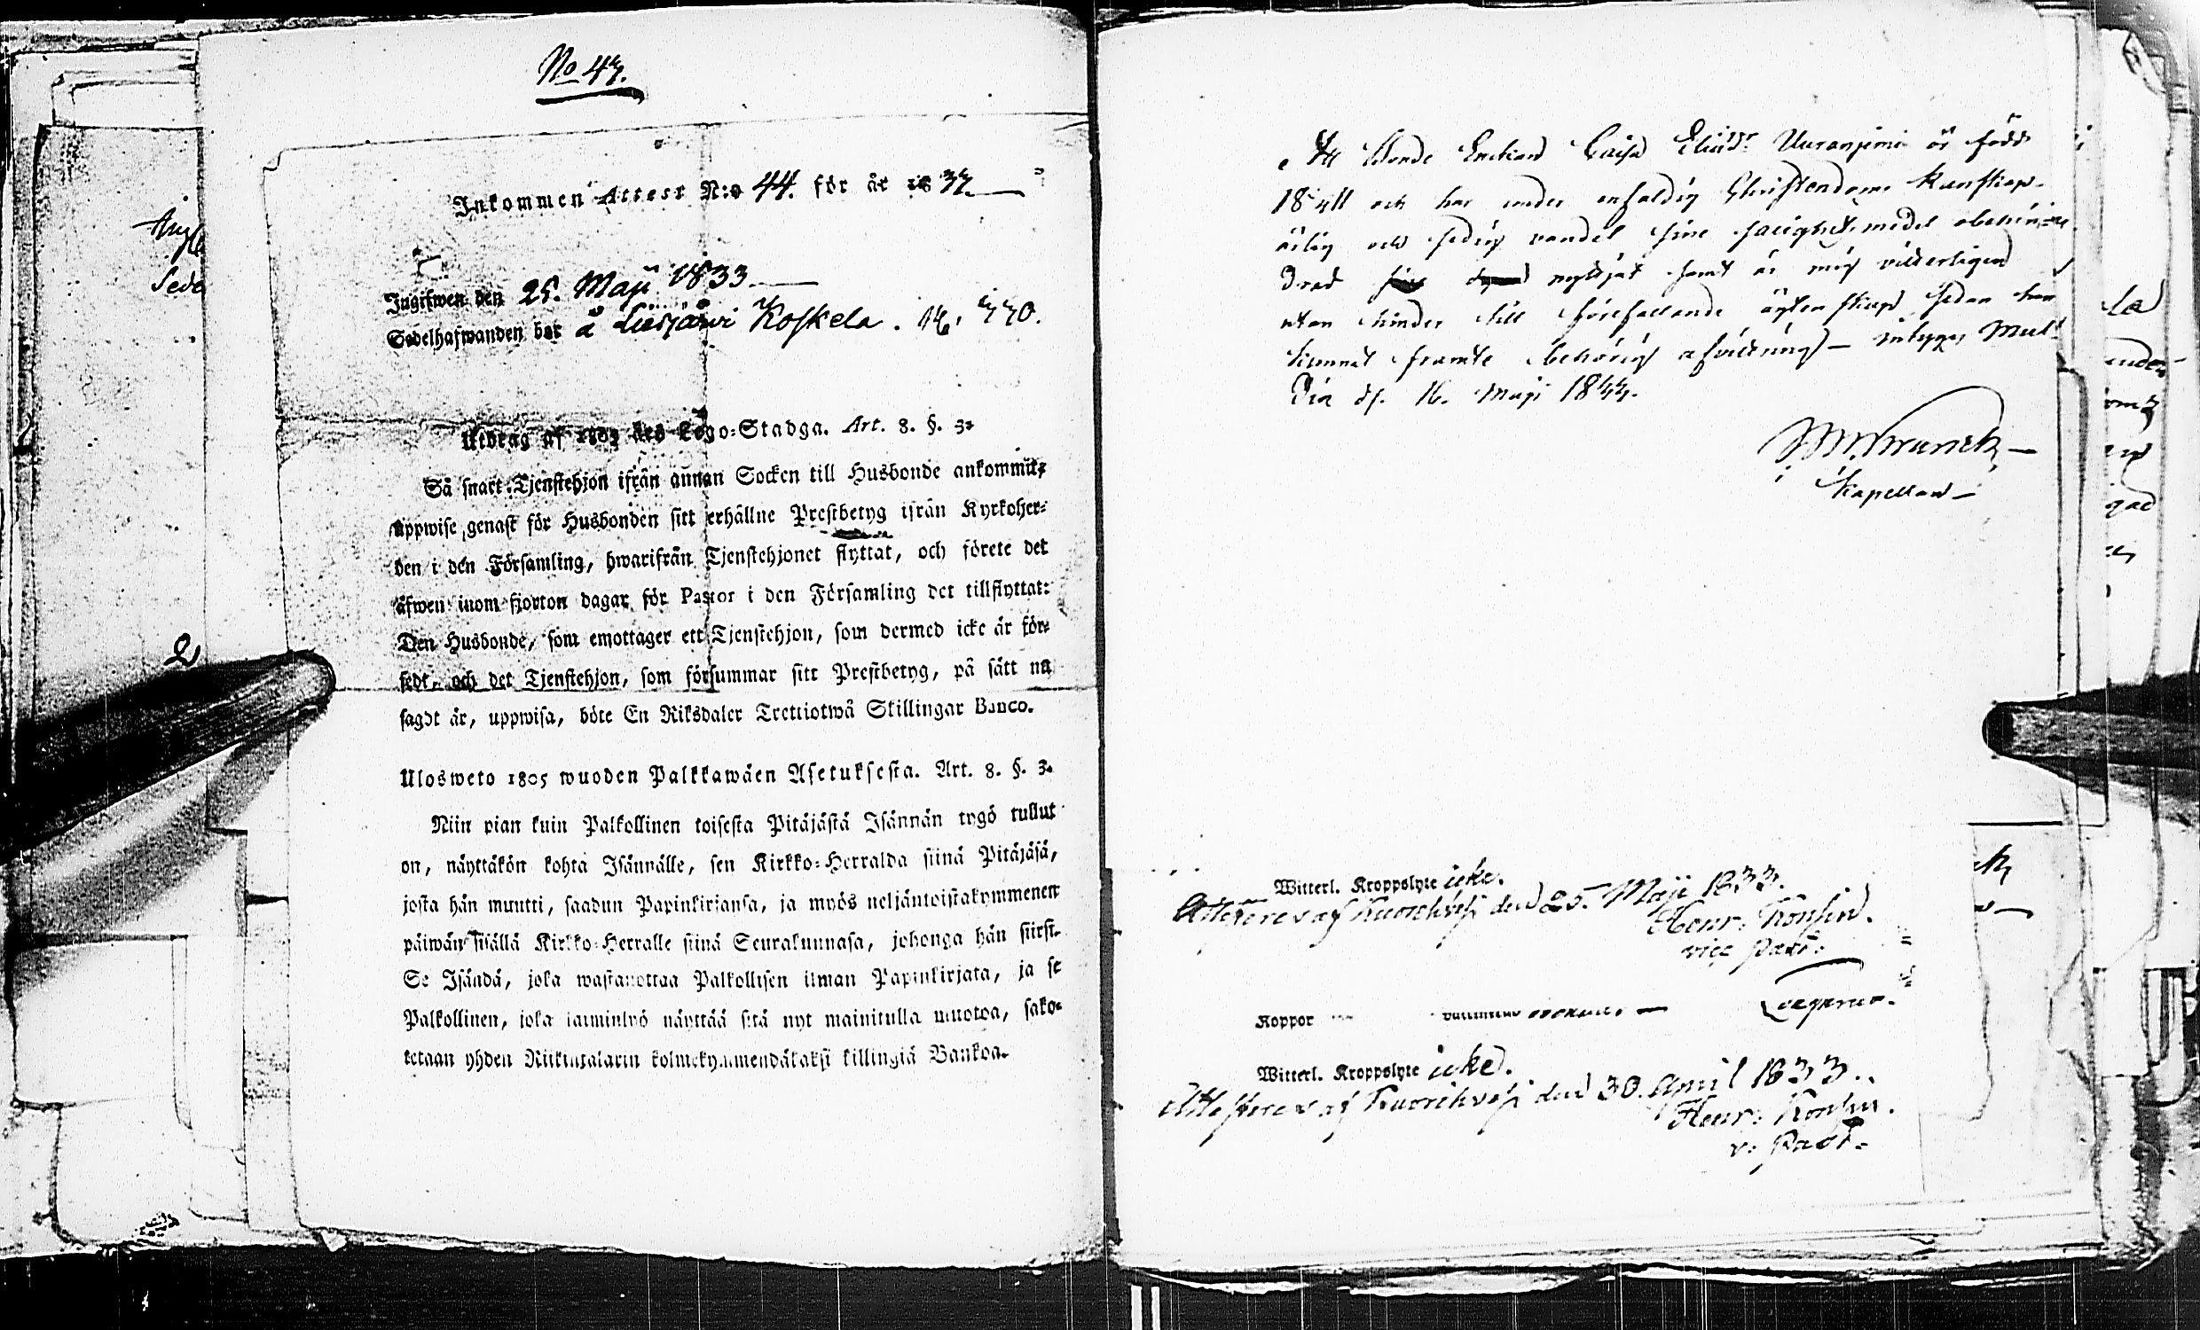 No 47.
Inkommen Attest N:o 44. för år 18 37.
Ingifwen den 25. Maji 1833
Sedelhafwanden bor å Liesjärvi Koskela.
Utdrag af 1805 års Lego-Stadga. Art. 8. §. 3.
Så snart Tjenstehjon ifrån annan Socken till Husbonde ankommit,
uppwise genast för Husbonden sitt erhållne Prestbetyg ifrån Kyrkoher-
den i den Församling, hwarifrån Tjenstehjonet flyttat, och förete det
äfwen inom fjorton dagar för Pastor i den Församling det tillflyttat:
Den Husbonde, som emottager ett Tjenstehjon, som dermed icke är för-
sedt, och det Tjenstehjon, som försummar sitt Prestbetyg, på sätt nu
sagdt är, uppwisa, böte En Riksdaler Trettiotwå Skillingar Banco.
Ulosweto 1805 wuoden Palkkawäen Asetuksesta. Art. 8. §. 3.
Niin pian kuin Palkollinen toisesta Pitäjästä Isännän tygö tullut
on, näyttäkön kohta Isännälle, sen Kirkko-Herralda siinä Pitäjäsä,
josta hän muutti, saadun Papinkirjansa, ja myös neljäntoistakymmenen
päiwän sisällä Kirkko-Herralle siinä Seurakunnasa, johonga hän siirsi.
Se Isändä, joka wastanottaa Palkollisen ilman Papinkirjata, ja se
Palkollinen, joka laiminlyö näyttää sitä nyt mainitulla muotoa, sako-
tetaan yhden Riikintalarin kolmekymmendäkaksi killingiä Bankoa.
Att Bonde Enckan Caisa Uuranjemi är född
18 och har under enfaldig Christendoms kunskap
ärlig och sedig vandel sine salighets medel obehin-
drad nyttjat samt är mig vitterligen
utan hinder till förefallande äktenskap sedan hon
kunnat framte behörig afvittring – intygas Mul-
dia d. 16. Maji 1844.
Kapellan
Witterl. Kroppslyte icke.
Attesteras af Kuorehvesi den 25. Maji 1833.
Henr: Konsin.
vice Past:
Koppor
Witterl. Kroppslyte icke.
Attesteras af Kuorehvesi den 30. April 1833.
Henr: Konsin.
v: Past: